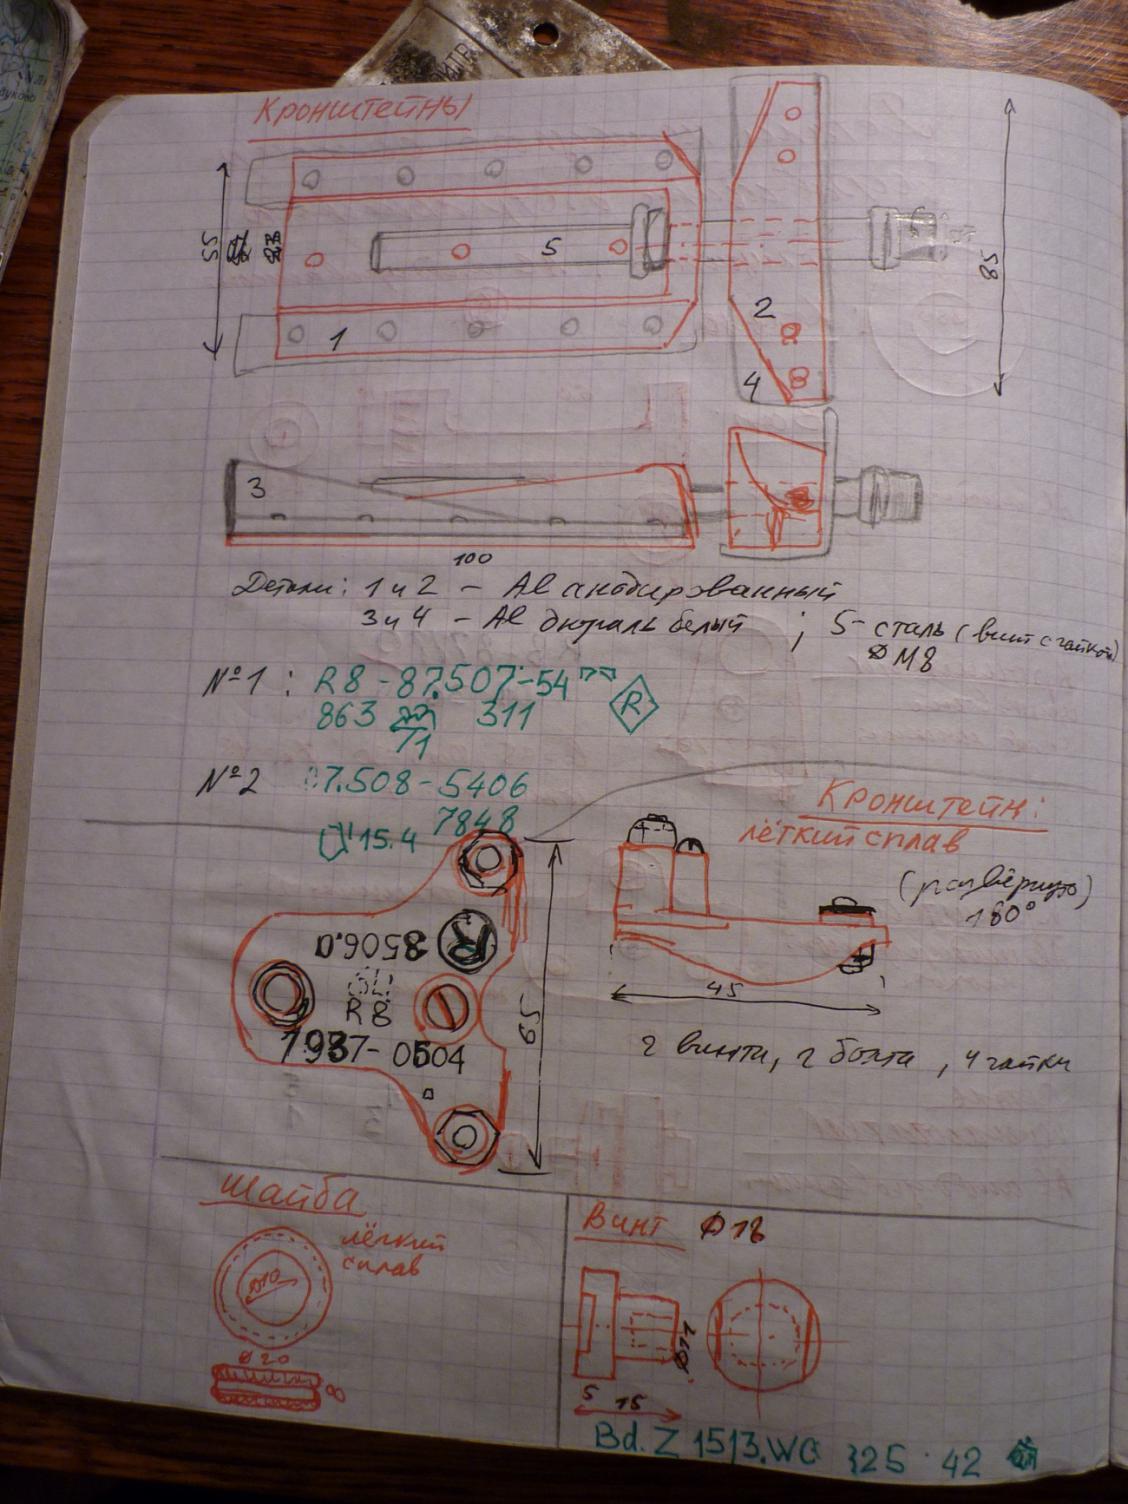 Кронштейны
55
5
1
2
4
85
3
100
Детали: 1 и 2 - Al анодированный
3 и 4 - Al дюраль белый ; 5- сталь (винт с гайкой)
Ø M8
№1 : R8 -87.507-54
863 311
/1
R
№2 7.508-5406
7848
15.4
Кронштейн:
лёгкий сплав
(развёрнуто)
180°
8506.a
R
R8
1937-0504
69
45
2 винта, 2 болта, 4 гайки
Шайба
лёгкий
сплав
Ø10
Ø 20
8
Винт Ø18
Ø12
5 15
Bd. Z 1513.WG 325 · 42